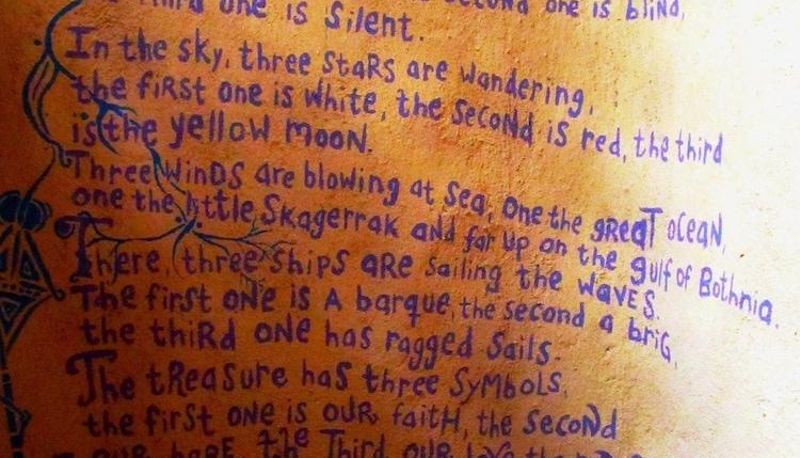 third one is silent.
second one is blind,
In the sky, three staRs are wandering,
the fiRst one is white, the second is red, the third
is the yellow moon.
Three Winds are blowing at Sea, one the gReaT ocean,
one the little Skagerrak and far up on the gulf of Bothnia.
There, three ships aRe sailing the waves.
The first one is A barque, the second a brig,
the thiRd one has ragged sails.
The tReasuRe has three symbols,
the first one is ouR faitH, the second
our hope the Third our love